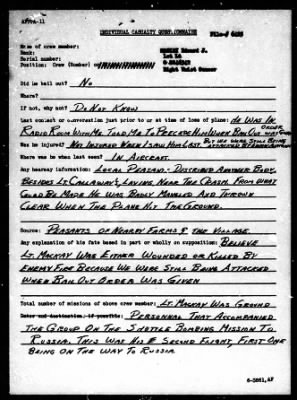 AFPPA-11
INDIVIDUAL CASUALTY QUESTIONNAIRE
Name of crew member: Edward J.
Rank: 1st Lt
Serial number:
Position: Crew (Number)
Did he bail out? No
Where?
If not, why not? Do Not Know
Last contact or conversation just prior to or at time of loss of plane: He Was In
Radio Room With Me. Told Me To Precede Him When Bail Out Order
Was he injured? Not Injured When I Saw Him Last. But We Were Still Being
Where was he when last seen? In Aircraft.
Any hearsay information: Local Peasant- Discribed Another Body
Besides Lt. Callaway's, Laying Near The Crash. From What
Could Be Made He Was Badly Mangled And Thrown
Clear When The Plane Hit The Ground.
Source: Peasants of Nearby Farms & The Village
Any explanation of his fate based in part or wholly on supposition: Believe
Lt. Mackay Was Either Wounded or Killed By
Enemy Fire Because We Were Still Being Attacked
When Bail Out Order Was Given
Total number of missions of above crew member: Lt. Mackay Was Ground
Dates and destination, if possible: Personnal That Accompanied
The Group On The Shuttle Bombing Mission To
Russia. This Was His Second Flight, First One
Being On The Way To Russia
6-3861,AF